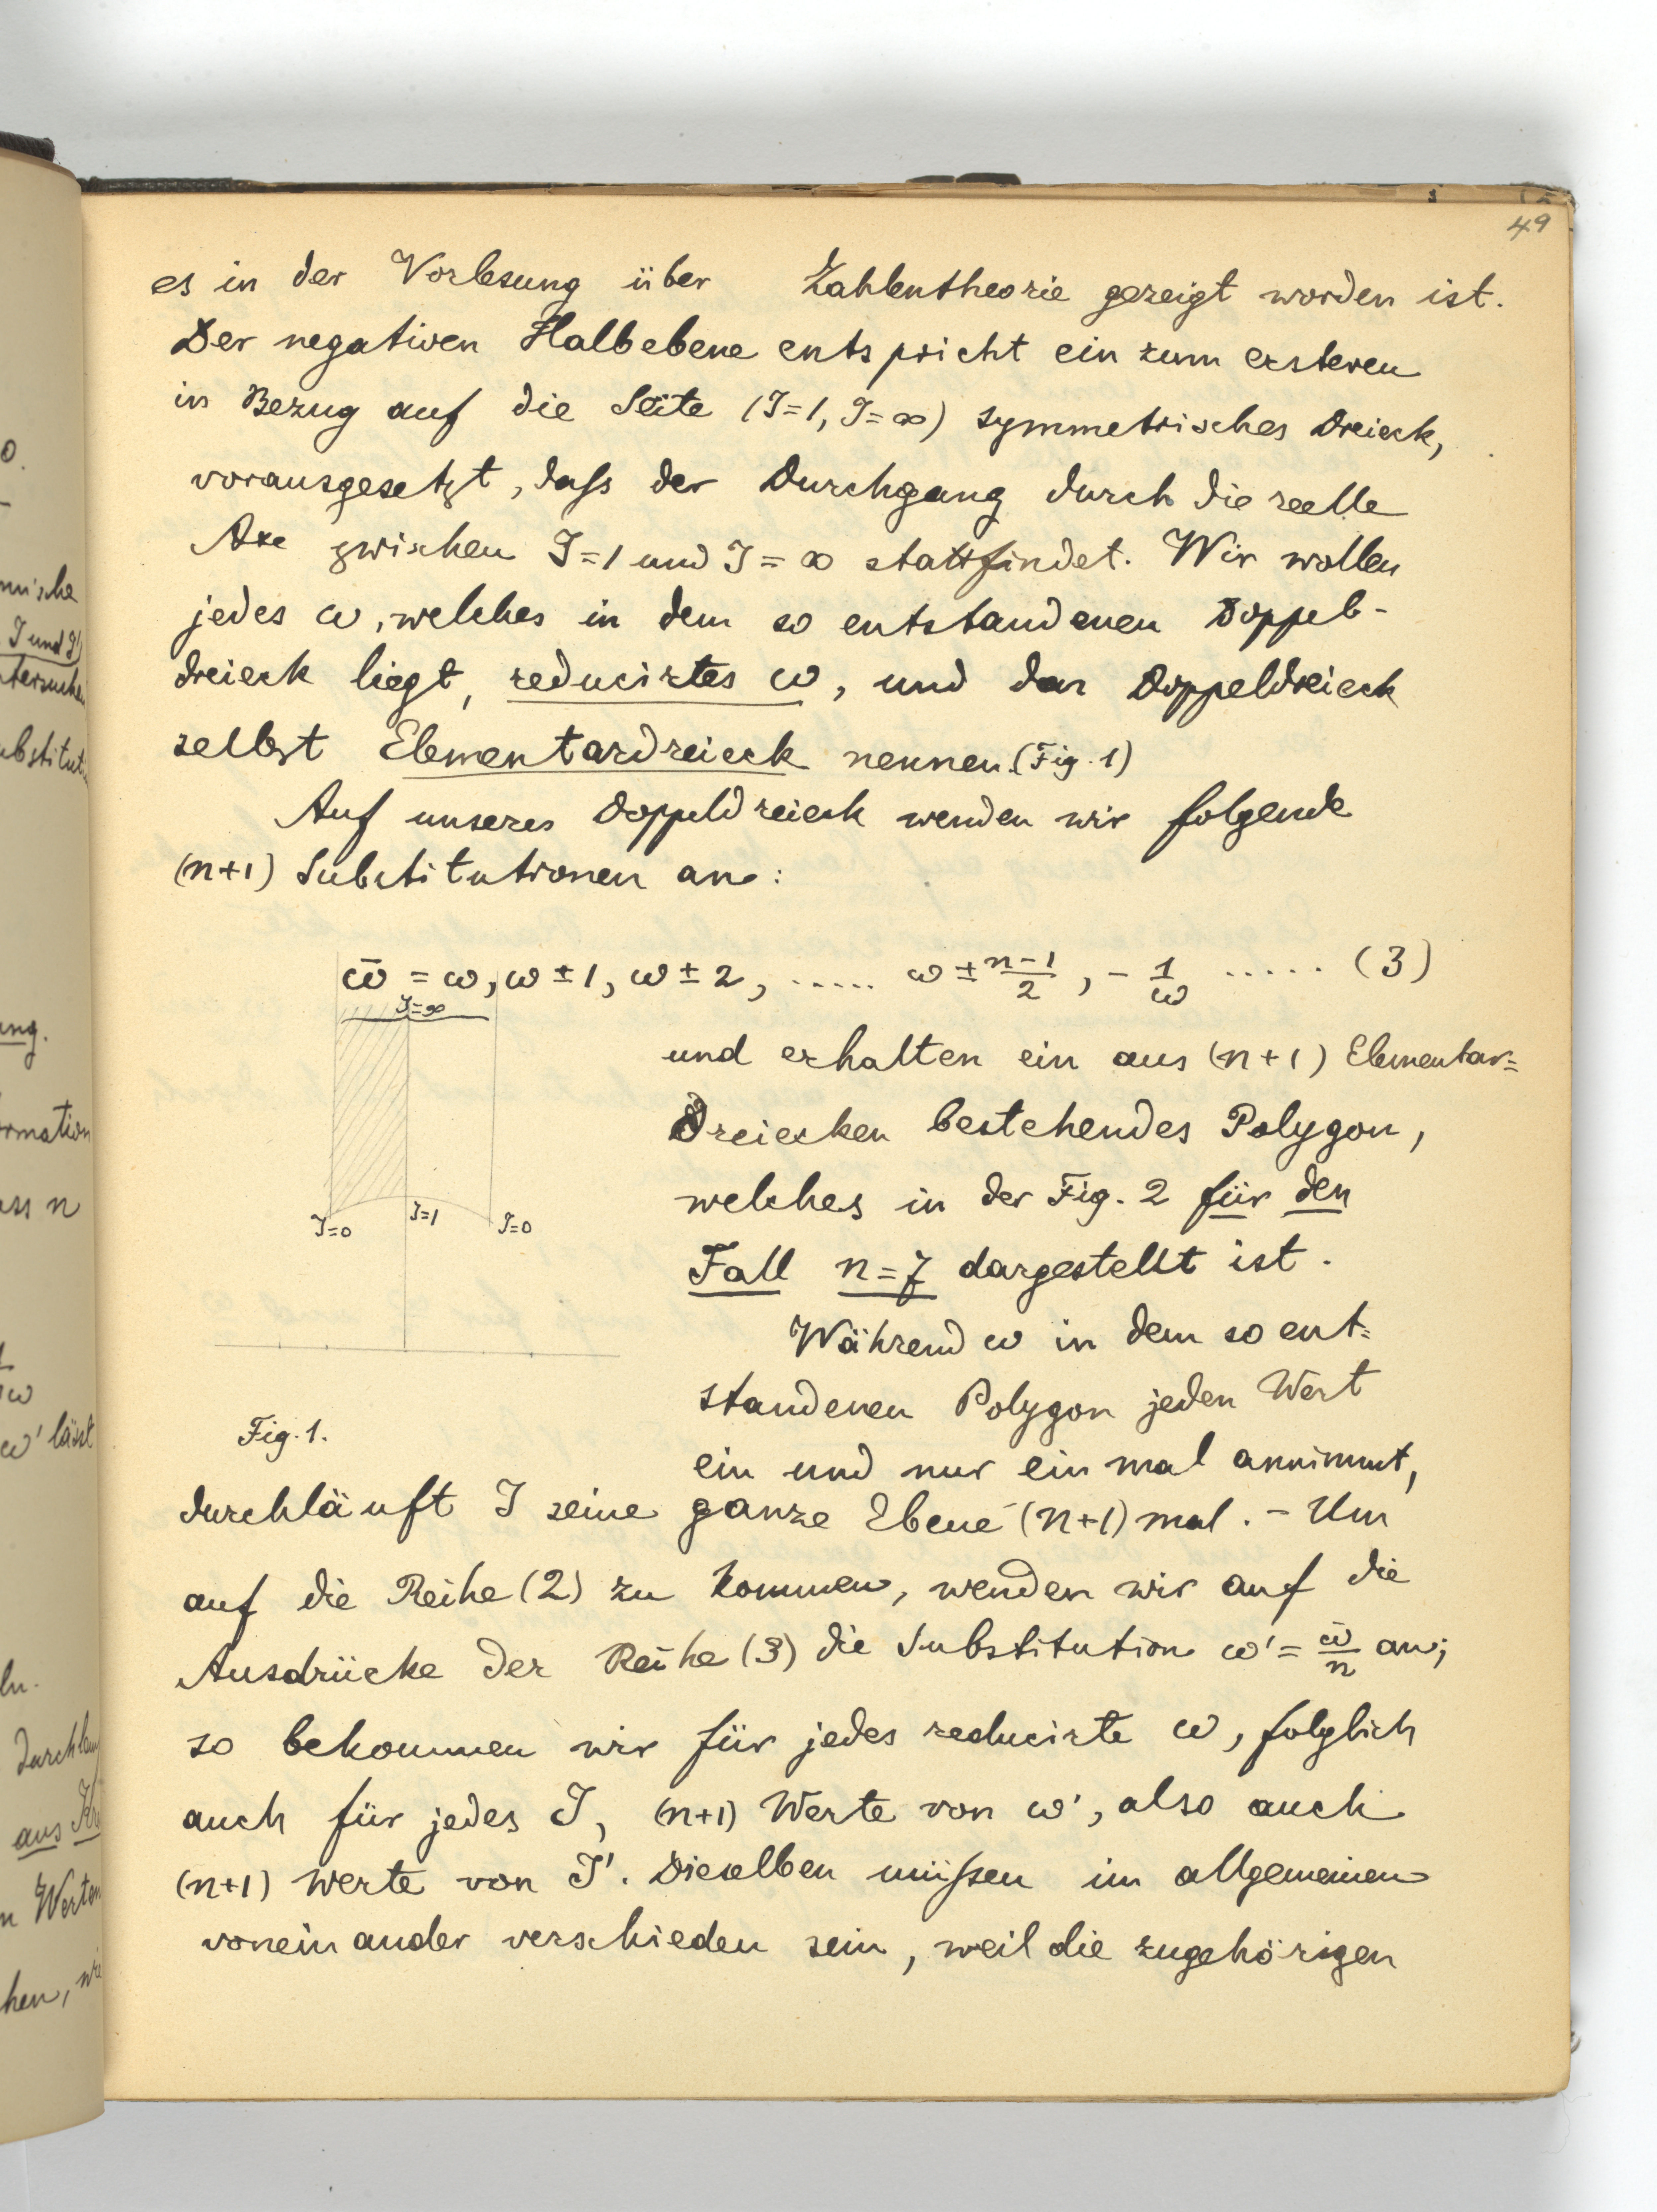 49
es in der Vorlesung über Zahlentheorie gezeigt worden ist.
Der negativen Halbebene entspricht ein zum ersteren
in Bezug auf die Seite (J=1, J=∞) symmetrisches Dreieck,
vorausgesetzt, daß der Durchgang durch die reelle
Axe zwischen J=1 und J=∞ stattfindet. Wir wollen
jedes ω, welches in dem so entstandenen Doppel-
dreieck liegt, reducirtes ω, und das Doppeldreieck
selbst Elementardreieck nennen. (Fig. 1)
Auf unseres Doppeldreieck wenden wir folgende
(n+1) Substitutionen an:
ω̄ = ω, ω ± 1, ω ± 2, ..... ω ± (n-1)/2, - 1/ω ..... (3)
J=∞
J=0 J=1 J=0
Fig. 1.
und erhalten ein aus (n+1) Elementar=
Dreiecken bestehendes Polygon,
welches in der Fig. 2 für den
Fall n=7 dargestellt ist.
Während ω in dem so ent=
standenen Polygon jeden Wert
ein und nur ein mal annimmt,
durchläuft J seine ganze Ebene (n+1) mal. - Um
auf die Reihe (2) zu kommen, wenden wir auf die
Ausdrücke der Reihe (3) die Substitution ω' = ω̄/n an;
so bekommen wir für jedes reducirte ω, folglich
auch für jedes J, (n+1) Werte von ω', also auch
(n+1) Werte von J'. Dieselben müßen im allgemeinen
voneinander verschieden sein, weil die zugehörigen
mische
J und J'
ang.
ormation
ass n
ω' lässt
aus
n Werten
hen, wie